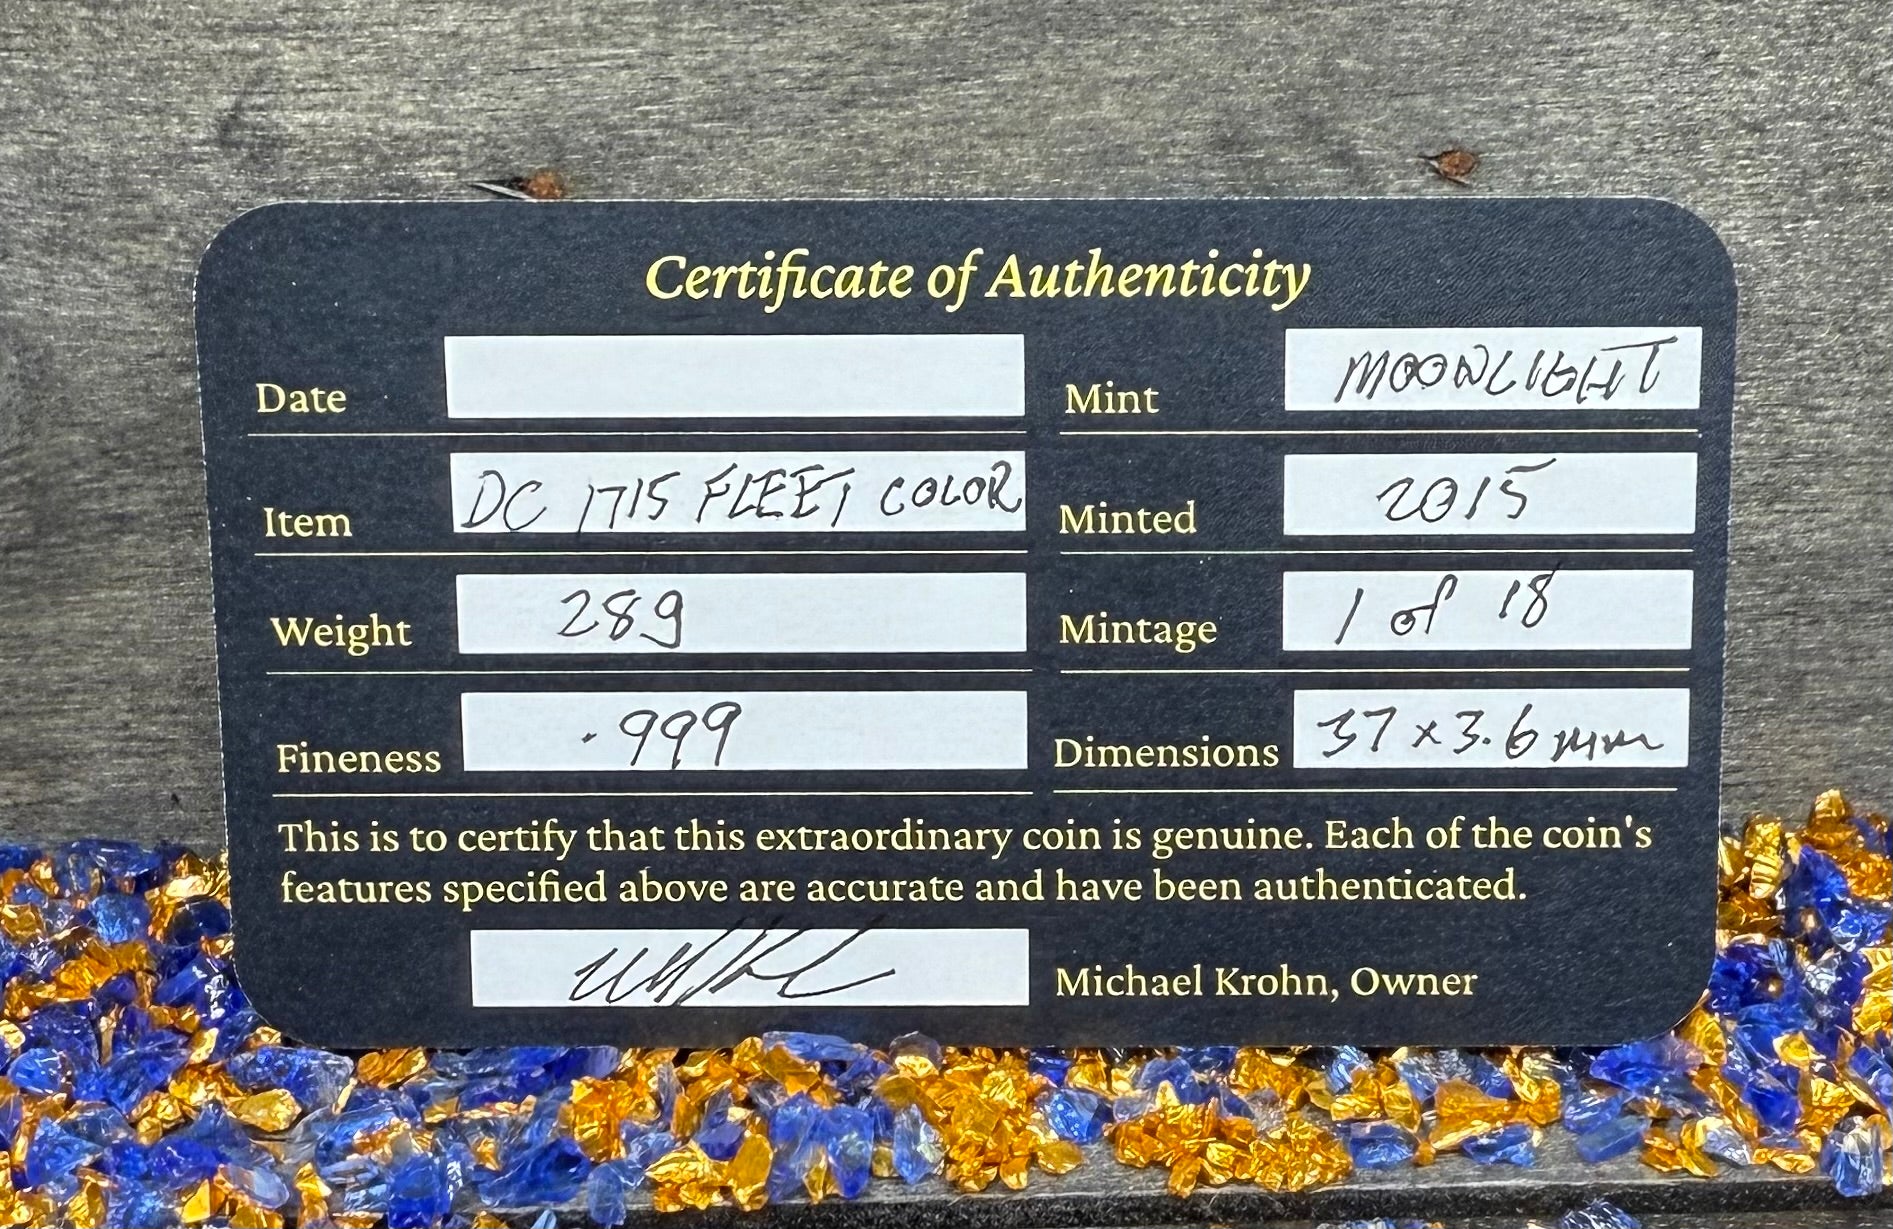 Certificate of Authenticity
Date
Mint MOONLIGHT
Item DC 1715 FLEET COLOR
Minted 2015
Weight 28g
Mintage 1 of 18
Fineness .999
Dimensions 37 x 3.6 mm
This is to certify that this extraordinary coin is genuine. Each of the coin's
features specified above are accurate and have been authenticated.
Michael Krohn, Owner